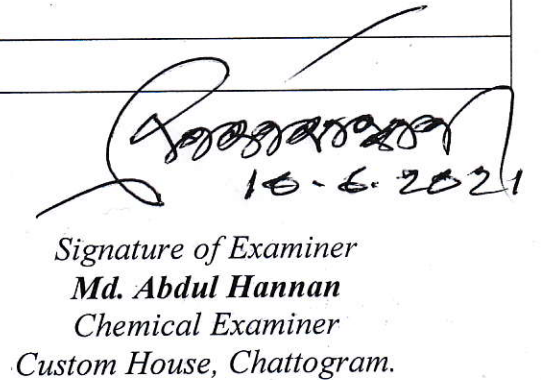 10-6-2021
Signature of Examiner
Md. Abdul Hannan
Chemical Examiner
Custom House, Chattogram.